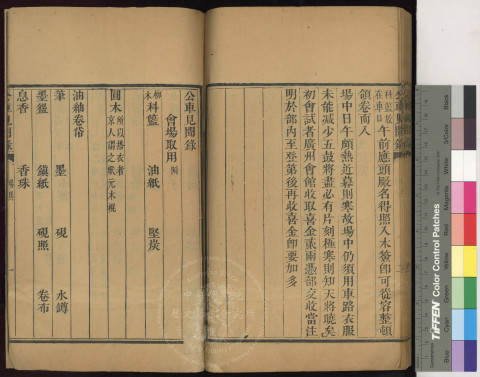 科藍放
在車口
午前應頭厫名得照入木簽即可從容整頓
領卷而入
場中日午頗熱近暮則寒故場中仍須用車路衣服
未能减少五鼓將盡必有片刻極寒則知天將曉矣
初會試者廣州會館收取喜金貳兩憑部文收當注
明於部內至登第後再收喜金卽要加多
公車見聞錄
會塲取用
柳木
科籃
油紙
堅炭
圓木
所以搭衣者
京人謂之歌元木棍
油紬卷帒
筆
墨
硯
水罇
墨盒
鎮紙
硯照
卷布
息香
香珠
公車見聞錄
TIFFEN Color Control Patches
Blue
Cyan
Green
Yellow
Red
Magenta
White
3/Color
Black